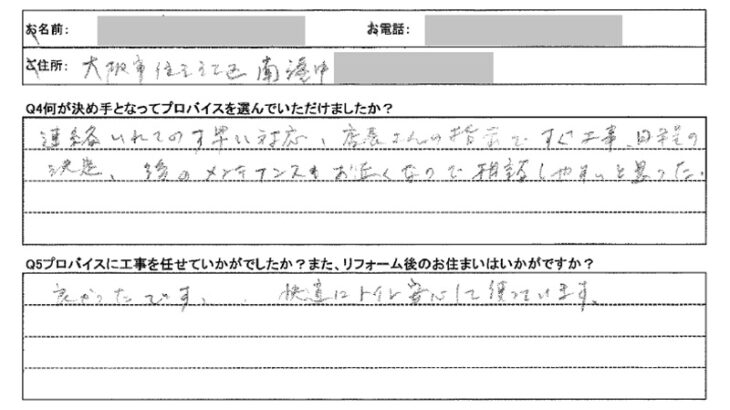 お名前: お電話:
ご住所: 大阪市住之江区南港中
Q4何が決め手となってプロバイスを選んでいただけましたか?
連絡いれてのす早い対応、店長さんの指示ですぐ工事、日程の
決定、後のメンテナンスもお近くなので相談しやすいと思った。
Q5プロバイスに工事を任せていかがでしたか?また、リフォーム後のお住まいはいかがですか?
良かったです、.. 快適にトイレ安心して使っています。